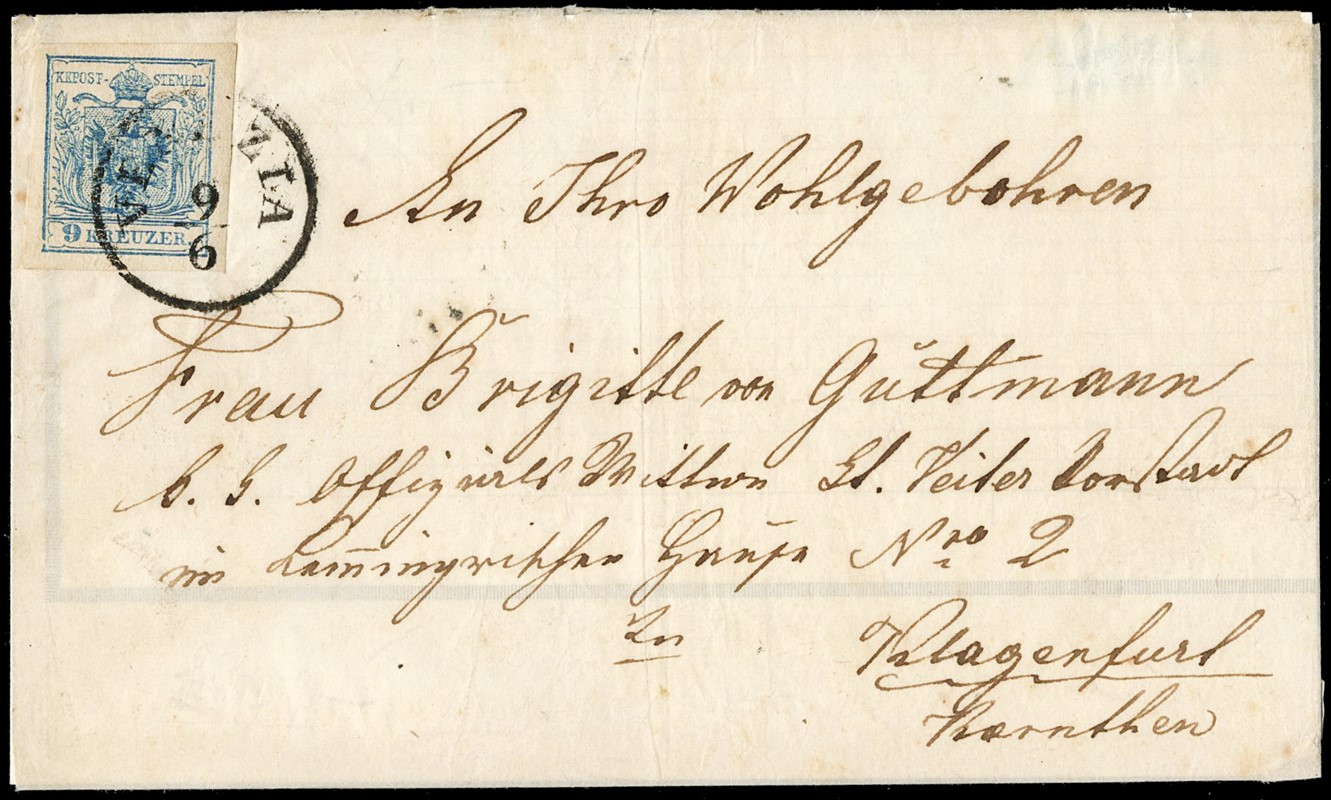 KKPOST-STEMPEL
9 KREUZER
9
6
An Ihro Wohlgebohren
Frau Brigitte von Guttmann
k. k. Offizials Wittwe St. Veiter Vorstadt
im Hause Nro 2
In
Klagenfurt
Kaernthen